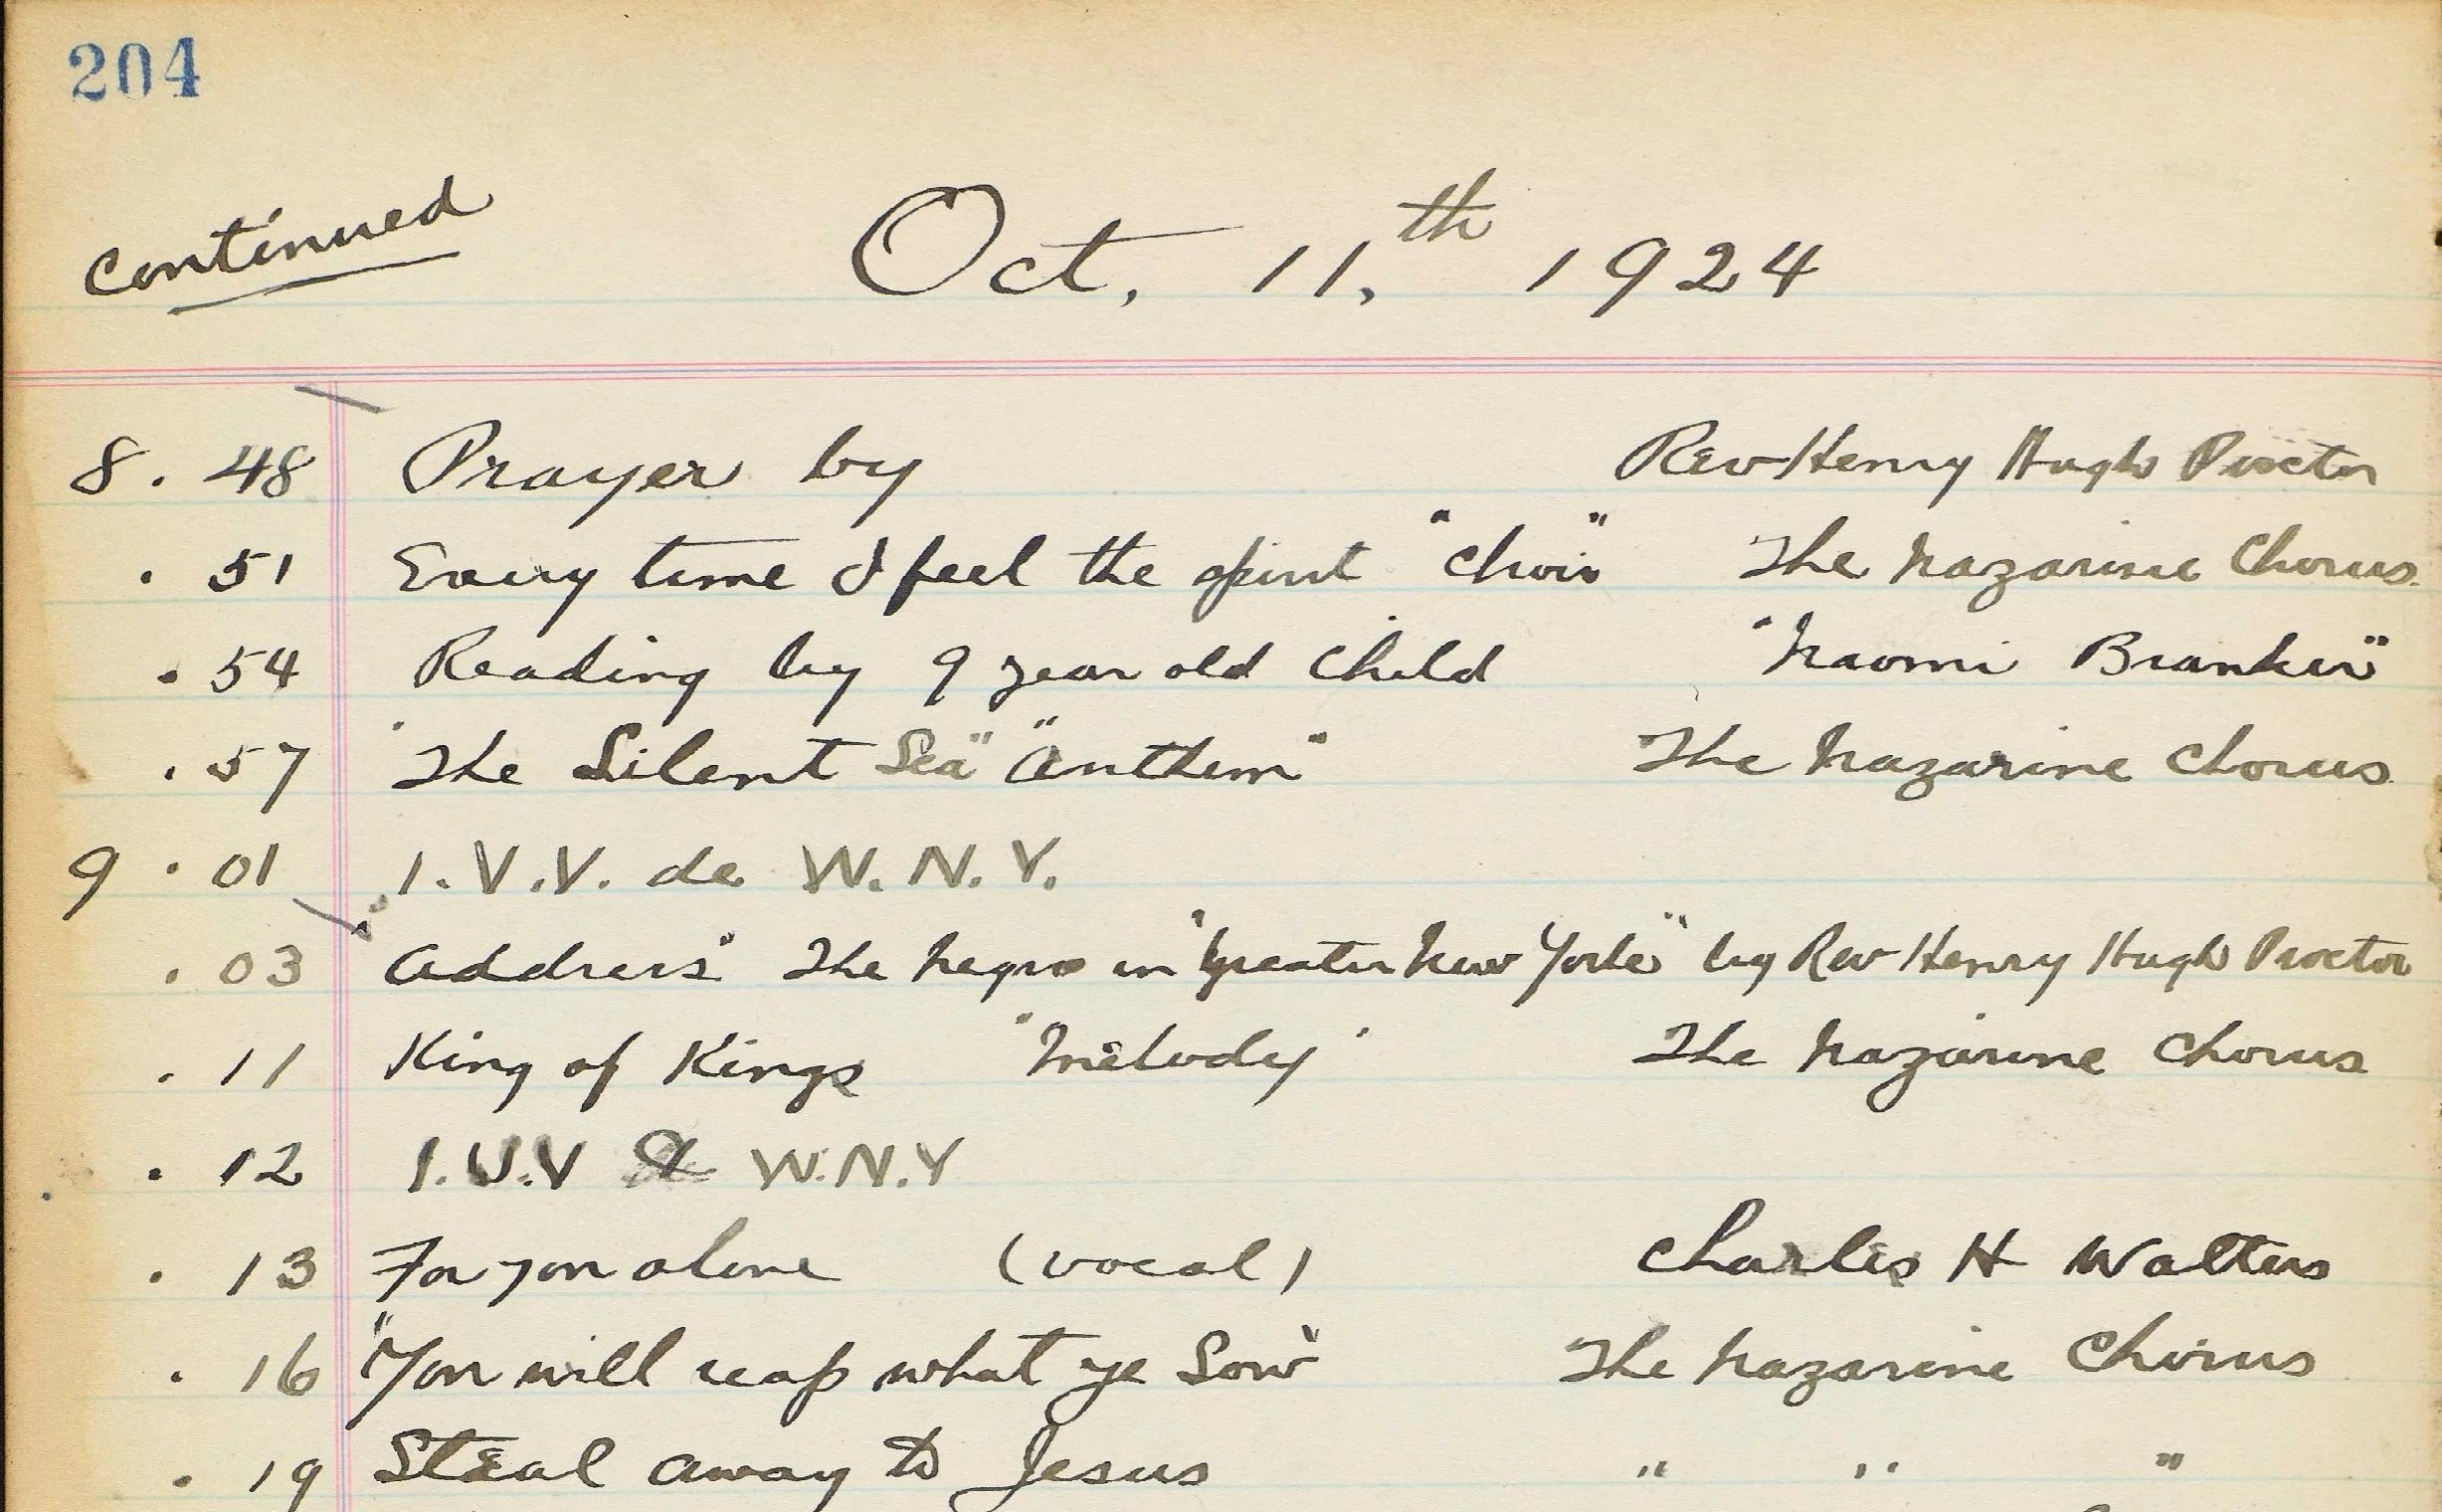 204
continued
Oct. 11.th 1924
8.48 Prayer by Rev Henry Hugh Proctor
.51 Every time I feel the spirit "choir" The Nazarine Chorus.
.54 Reading by 9 year old child "Naomi Branker"
.57 "The Silent Sea" "Anthem" The Nazarine Chorus.
9.01 1.V.V. de W.N.Y.
.03 "Address" The Negro in "Greater New York" by Rev Henry Hugh Proctor
.11 King of Kings "Melody" The Nazarine Chorus
.12 1.V.V de W.N.Y
.13 For you alone (vocal) Charles H Walters
.16 "You will reap what ye Sow" The Nazarine Chorus
.19 Steal away to Jesus " " "